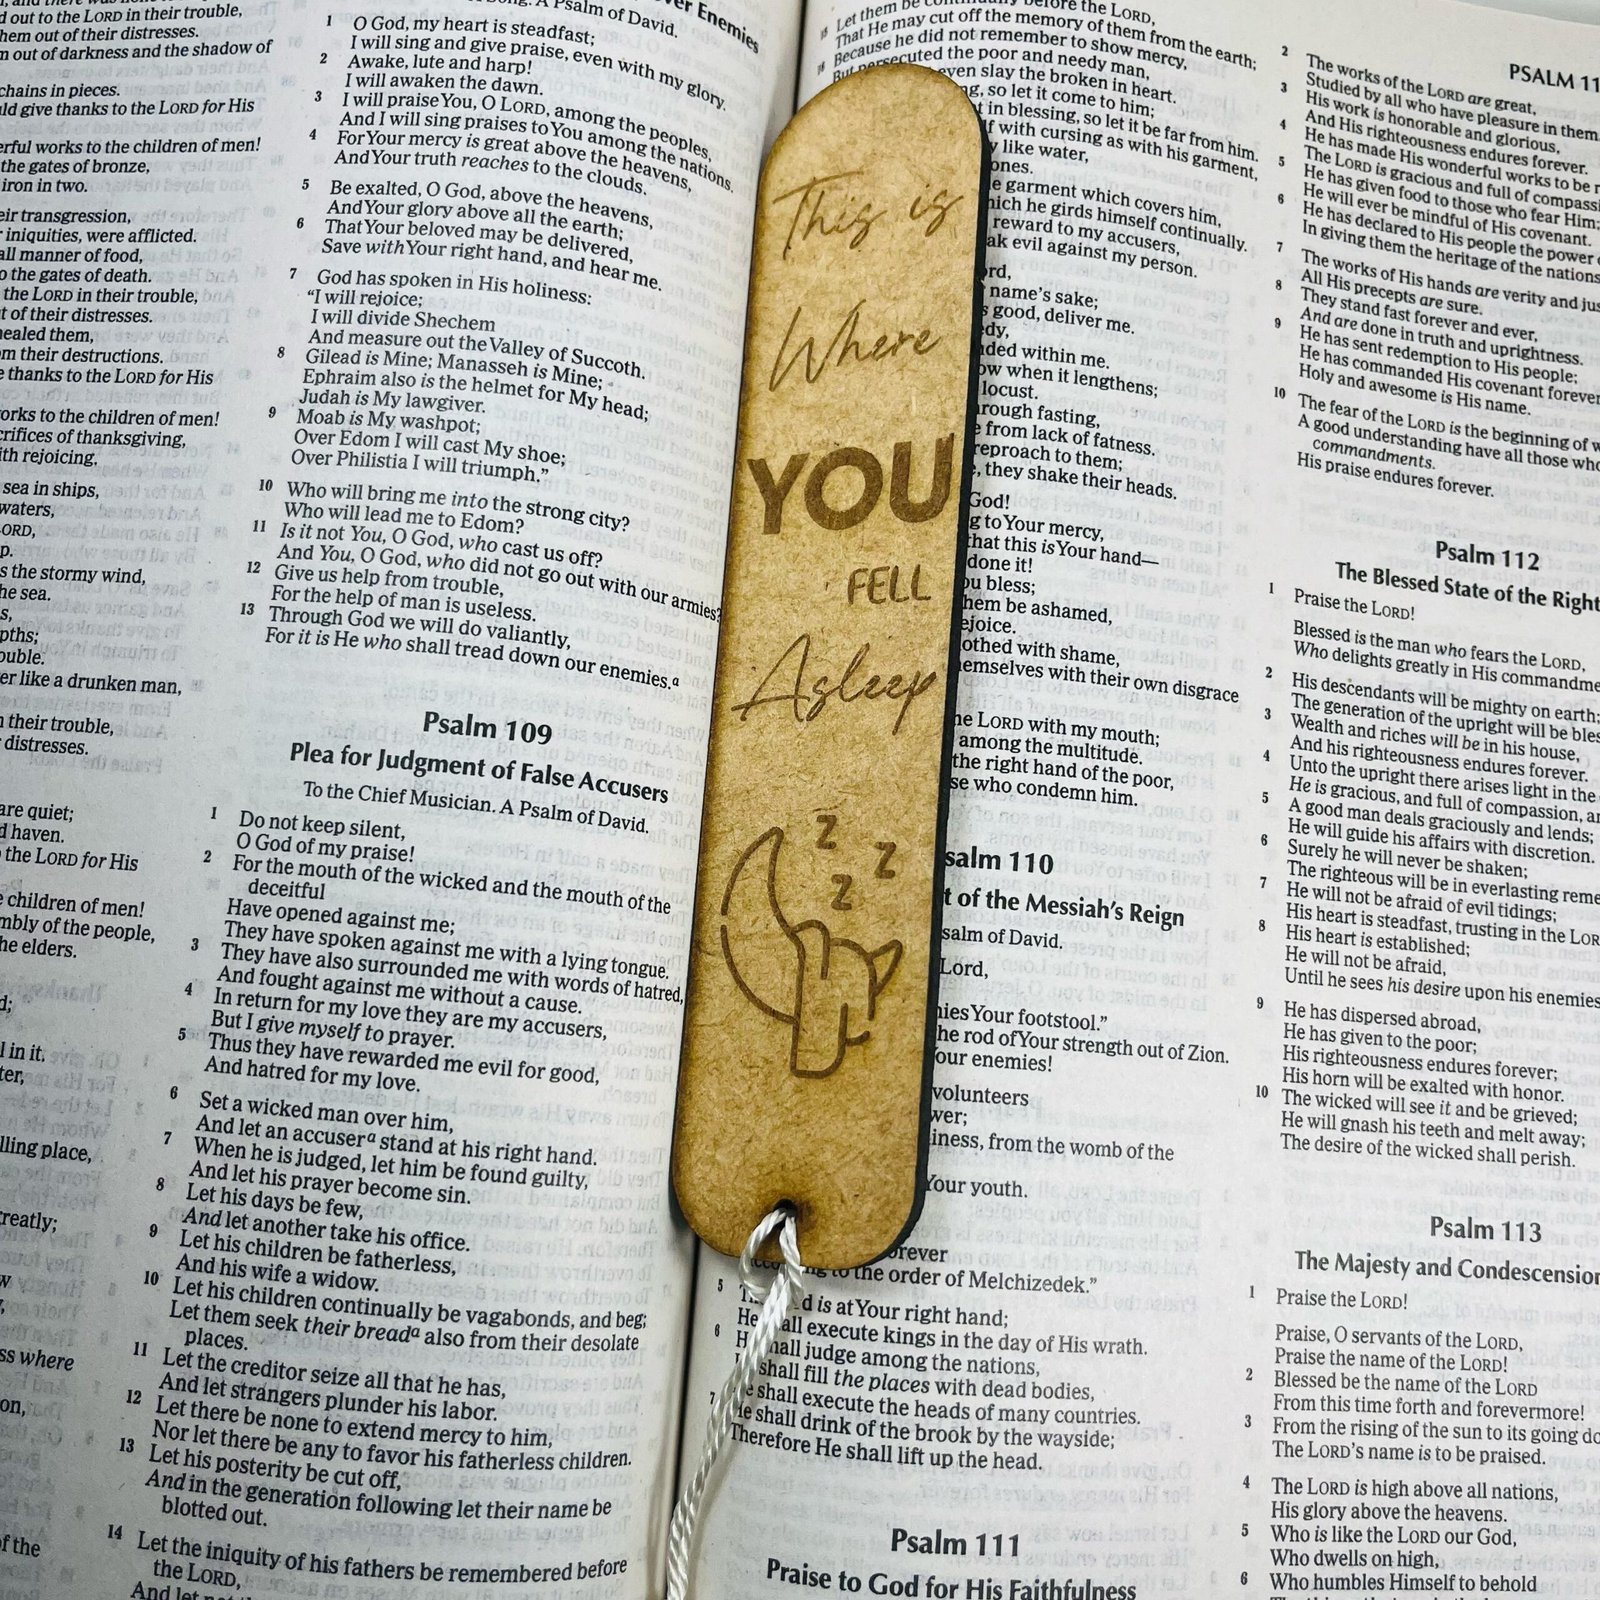 d out to the LORD in their trouble,
hem out of their distresses.
m out of darkness and the shadow of
chains in pieces.
ld give thanks to the LORD for His
erful works to the children of men!
the gates of bronze,
iron in two.
eir transgression,
iniquities, were afflicted.
all manner of food,
o the gates of death.
the LORD in their trouble,
t of their distresses.
healed them,
m their destructions.
e thanks to the LORD for His
orks to the children of men!
crifices of thanksgiving,
ith rejoicing,
sea in ships,
waters,
ORD,
p.
s the stormy wind,
he sea.
s,
pths;
ouble.
er like a drunken man,
n their trouble,
distresses.
are quiet;
d haven.
the LORD for His
e children of men!
mbly of the people,
he elders.
d;
l in it.
ter,
lling place,
reatly;
w
ss where
on,
f the
er Enemies
A Psalm of David.
1 O God, my heart is steadfast;
I will sing and give praise, even with my glory.
2 Awake, lute and harp!
I will awaken the dawn.
3 I will praise You, O LORD, among the peoples,
And I will sing praises to You among the nations.
4 For Your mercy is great above the heavens,
And Your truth reaches to the clouds.
5 Be exalted, O God, above the heavens,
And Your glory above all the earth;
6 That Your beloved may be delivered,
Save with Your right hand, and hear me.
7 God has spoken in His holiness:
"I will rejoice;
I will divide Shechem
And measure out the Valley of Succoth.
8 Gilead is Mine; Manasseh is Mine;
Ephraim also is the helmet for My head;
Judah is My lawgiver.
9 Moab is My washpot;
Over Edom I will cast My shoe;
Over Philistia I will triumph."
10 Who will bring me into the strong city?
Who will lead me to Edom?
11 Is it not You, O God, who cast us off?
And You, O God, who did not go out with our armies?
12 Give us help from trouble,
For the help of man is useless.
13 Through God we will do valiantly,
For it is He who shall tread down our enemies.a
Psalm 109
Plea for Judgment of False Accusers
To the Chief Musician. A Psalm of David.
1 Do not keep silent,
O God of my praise!
2 For the mouth of the wicked and the mouth of the
deceitful
Have opened against me;
They have spoken against me with a lying tongue.
3 They have also surrounded me with words of hatred,
And fought against me without a cause.
4 In return for my love they are my accusers,
But I give myself to prayer.
5 Thus they have rewarded me evil for good,
And hatred for my love.
6 Set a wicked man over him,
And let an accusera stand at his right hand.
7 When he is judged, let him be found guilty,
And let his prayer become sin.
8 Let his days be few,
And let another take his office.
9 Let his children be fatherless,
And his wife a widow.
10 Let his children continually be vagabonds, and beg;
Let them seek their breada also from their desolate
places.
11 Let the creditor seize all that he has,
And let strangers plunder his labor.
12 Let there be none to extend mercy to him,
Nor let there be any to favor his fatherless children.
13 Let his posterity be cut off,
And in the generation following let their name be
blotted out.
14 Let the iniquity of his fathers be remembered before
the LORD,
This is
Where
YOU
FELL
Asleep
z
z
z
15 Let them be continually before the LORD,
That He may cut off the memory of them from the earth;
16 Because he did not remember to show mercy,
But persecuted the poor and needy man,
even slay the broken in heart.
ng, so let it come to him;
t in blessing, so let it be far from him.
lf with cursing as with his garment,
y like water,
ones.
e garment which covers him,
hich he girds himself continually.
reward to my accusers,
ak evil against my person.
ord,
name's sake;
s good, deliver me.
edy,
nded within me.
ow when it lengthens;
locust.
rough fasting,
e from lack of fatness.
reproach to them;
e, they shake their heads.
God!
g to Your mercy,
that this is Your hand—
done it!
ou bless;
hem be ashamed,
ejoice.
othed with shame,
emselves with their own disgrace
he LORD with my mouth;
among the multitude.
the right hand of the poor,
se who condemn him.
salm 110
t of the Messiah's Reign
salm of David.
Lord,
nies Your footstool."
he rod of Your strength out of Zion.
our enemies!
volunteers
wer;
liness, from the womb of the
Your youth.
orever
to the order of Melchizedek."
5 d is at Your right hand;
He all execute kings in the day of His wrath.
6 H hall judge among the nations,
shall fill the places with dead bodies,
e shall execute the heads of many countries.
7 He shall drink of the brook by the wayside;
Therefore He shall lift up the head.
Psalm 111
Praise to God for His Faithfulness
PSALM 11
2 The works of the LORD are great,
Studied by all who have pleasure in them.
3 His work is honorable and glorious,
And His righteousness endures forever.
4 He has made His wonderful works to be r
The LORD is gracious and full of compassi
5 He has given food to those who fear Him;
He will ever be mindful of His covenant.
6 He has declared to His people the power
In giving them the heritage of the nations
7 The works of His hands are verity and jus
All His precepts are sure.
8 They stand fast forever and ever,
And are done in truth and uprightness.
9 He has sent redemption to His people;
He has commanded His covenant forever
Holy and awesome is His name.
10 The fear of the LORD is the beginning of w
A good understanding have all those who
commandments.
His praise endures forever.
Psalm 112
The Blessed State of the Right
1 Praise the LORD!
Blessed is the man who fears the LORD,
Who delights greatly in His commandme
2 His descendants will be mighty on earth;
The generation of the upright will be bles
3 Wealth and riches will be in his house,
And his righteousness endures forever.
4 Unto the upright there arises light in the
He is gracious, and full of compassion, an
5 A good man deals graciously and lends;
He will guide his affairs with discretion.
6 Surely he will never be shaken;
The righteous will be in everlasting reme
7 He will not be afraid of evil tidings;
His heart is steadfast, trusting in the LOR
8 His heart is established;
He will not be afraid,
Until he sees his desire upon his enemies
9 He has dispersed abroad,
He has given to the poor;
His righteousness endures forever;
His horn will be exalted with honor.
10 The wicked will see it and be grieved;
He will gnash his teeth and melt away;
The desire of the wicked shall perish.
Psalm 113
The Majesty and Condescension
1 Praise the LORD!
Praise, O servants of the LORD,
Praise the name of the LORD!
2 Blessed be the name of the LORD
From this time forth and forevermore!
3 From the rising of the sun to its going do
The LORD's name is to be praised.
4 The LORD is high above all nations,
His glory above the heavens.
5 Who is like the LORD our God,
Who dwells on high,
6 Who humbles Himself to behold